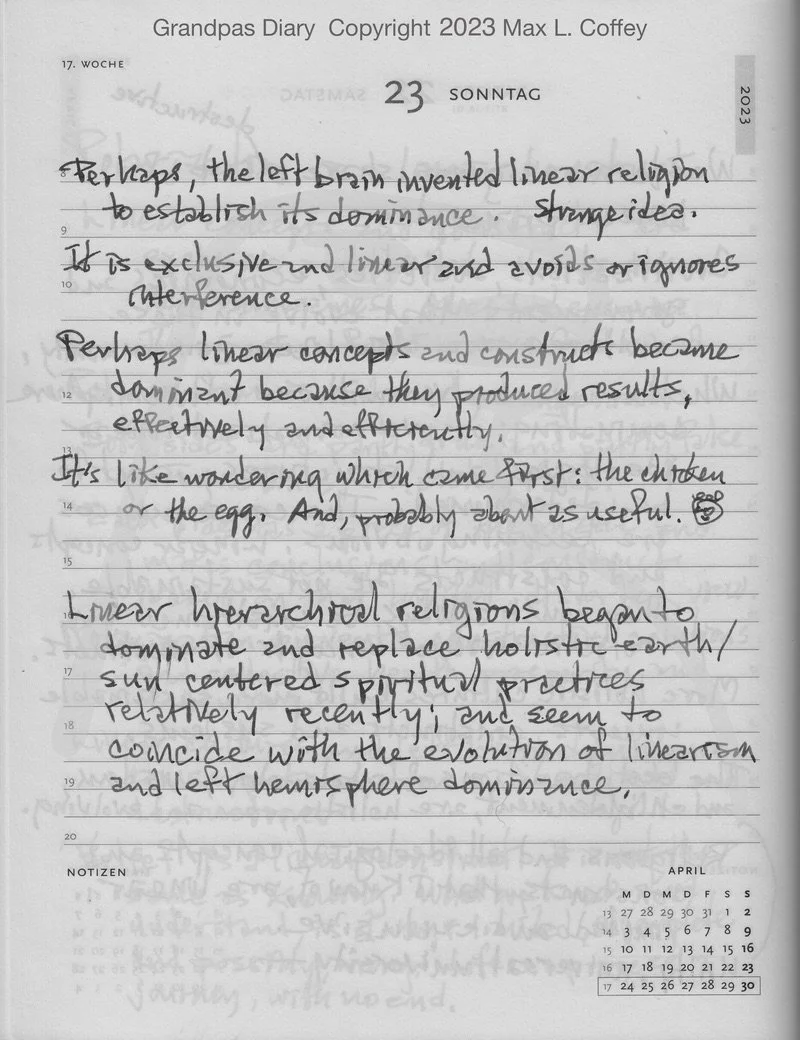 Grandpas Diary Copyright 2023 Max L. Coffey
17. WOCHE
23 SONNTAG
2023
8 Perhaps, the left brain invented linear religion
to establish its dominance. Strange idea.
9
It is exclusive and linear and avoids or ignores
10 interference.
Perhaps linear concepts and constructs became
12 dominant because they produced results,
effectively and efficiently.
13
It's like wondering which came first: the chicken
14 or the egg. And, probably about as useful.
15
Linear hierarchical religions began to
dominate and replace holistic earth/
17 sun centered spiritual practices
relatively recently; and seem to
18
coincide with the evolution of linearism
19 and left hemisphere dominance.
20
NOTIZEN
APRIL
M D M D F S S
13 27 28 29 30 31 1 2
14 3 4 5 6 7 8 9
15 10 11 12 13 14 15 16
16 17 18 19 20 21 22 23
17 24 25 26 27 28 29 30